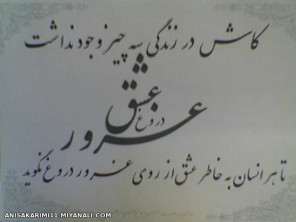 کاش در زندگی سه چیز وجود نداشت
عشق
دروغ
غرور
تا هر انسان به خاطر عشق از روی غرور دروغ نگوید
ANISAKARIMI11.MIYANALI.COM